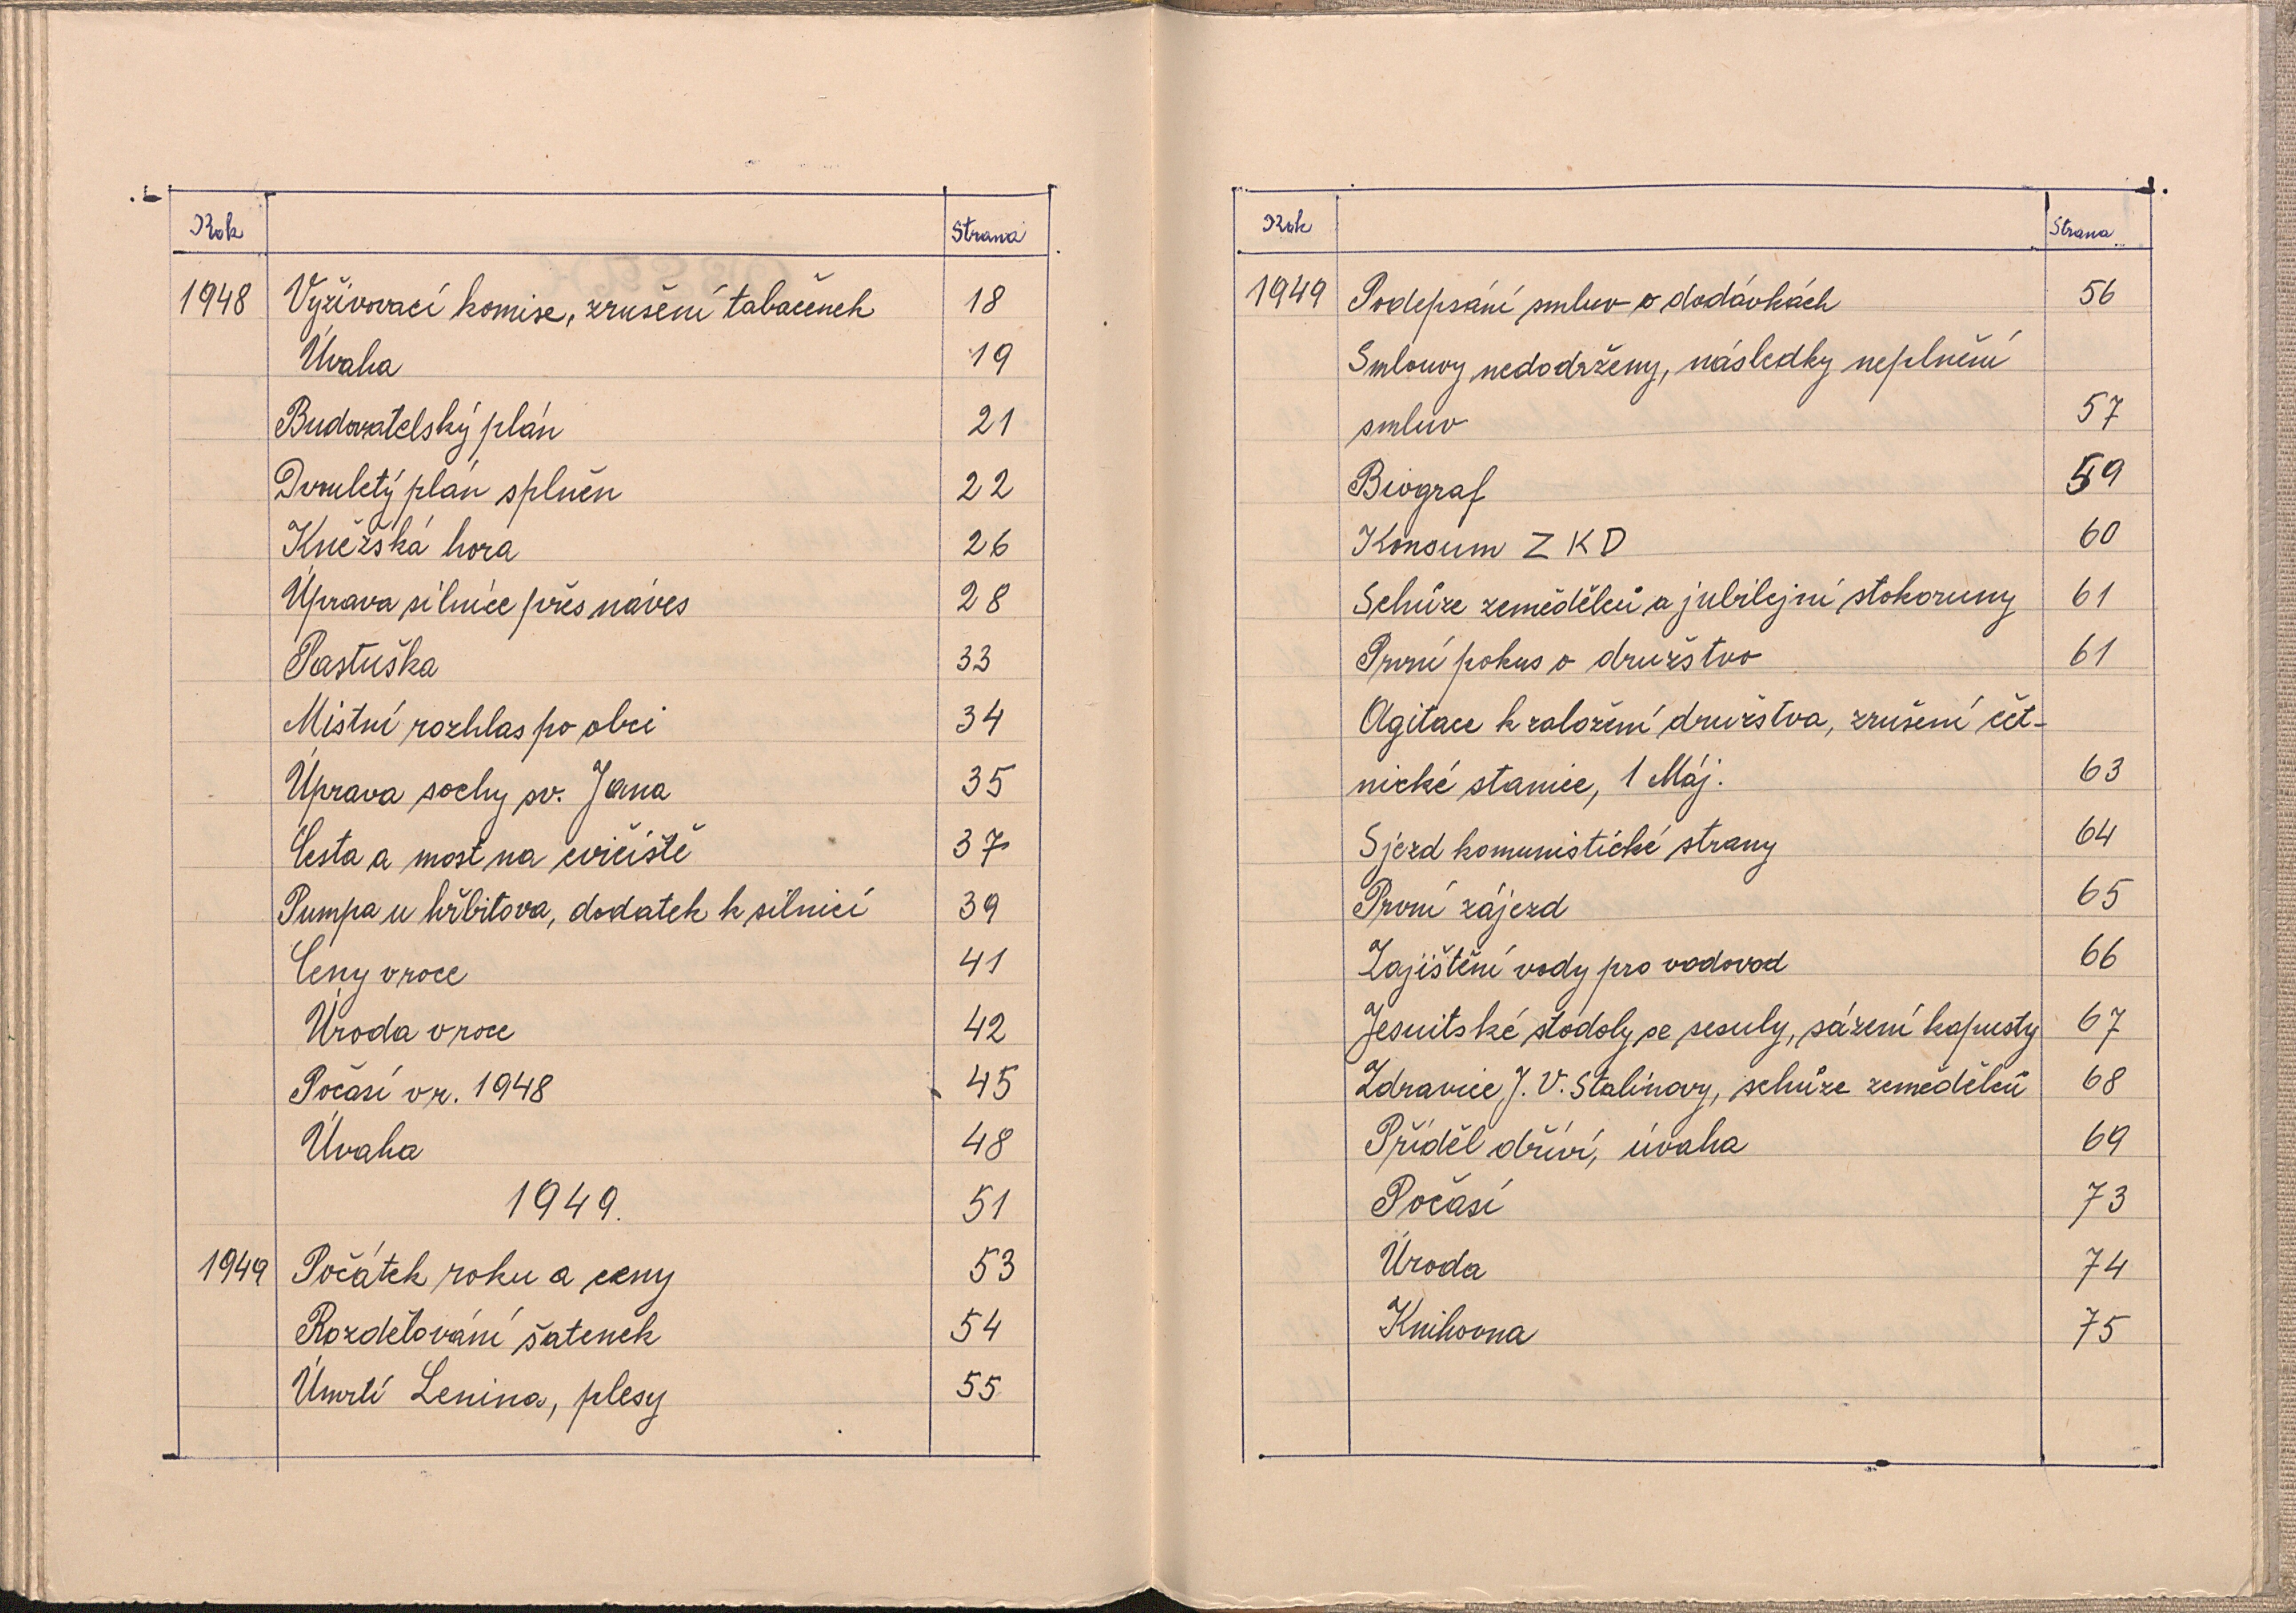 Rok Strana
1948 Vyživovací komise, zrušení tabačenek 18
Úvaha 19
Budovatelský plán 21
Dvouletý plán splněn 22
Kněžská hora 26
Úprava silnice přes náves 28
Pastuška 33
Místní rozhlas po obci 34
Úprava sochy sv. Jana 35
Cesta a most na cvičiště 37
Pumpa u hřbitova, dodatek k silnici 39
Ceny v roce 41
Úroda v roce 42
Počasí v r. 1948 45
Úvaha 48
1949. 51
1949 Počátek roku a ceny 53
Rozdělování šatenek 54
Úmrtí Lenina, plesy 55
Rok Strana
1949 Podepsání smluv o dodávkách 56
Smlouvy nedodrženy, následky neplnění
smluv 57
Biograf 59
Konsum Z K D 60
Schůze zemědělců a jubilejní stokoruny 61
První pokus o družstvo 61
Agitace k založení družstva, zrušení čet-
nické stanice, 1 Máj. 63
Sjezd komunistické strany 64
První zájezd 65
Zajištění vody pro vodovod 66
Jesuitské stodoly se sesuly, sázení kapusty 67
Zdravice J. V. Stalinovy, schůze zemědělců 68
Příděl dříví, úvaha 69
Počasí 73
Úroda 74
Knihovna 75